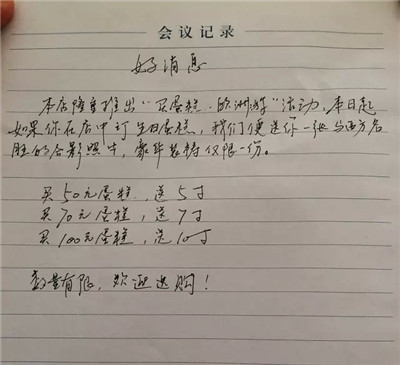 会议记录
好消息
本店隆重推出“买蛋糕·欧洲游”活动,本日起
如果你在店中订生日蛋糕,我们便送你一张与西方名
胜的合影照片,豪华装裱仅限一份。
买50元蛋糕,送5寸
买70元蛋糕,送7寸
买100元蛋糕,送10寸
数量有限,欢迎选购!